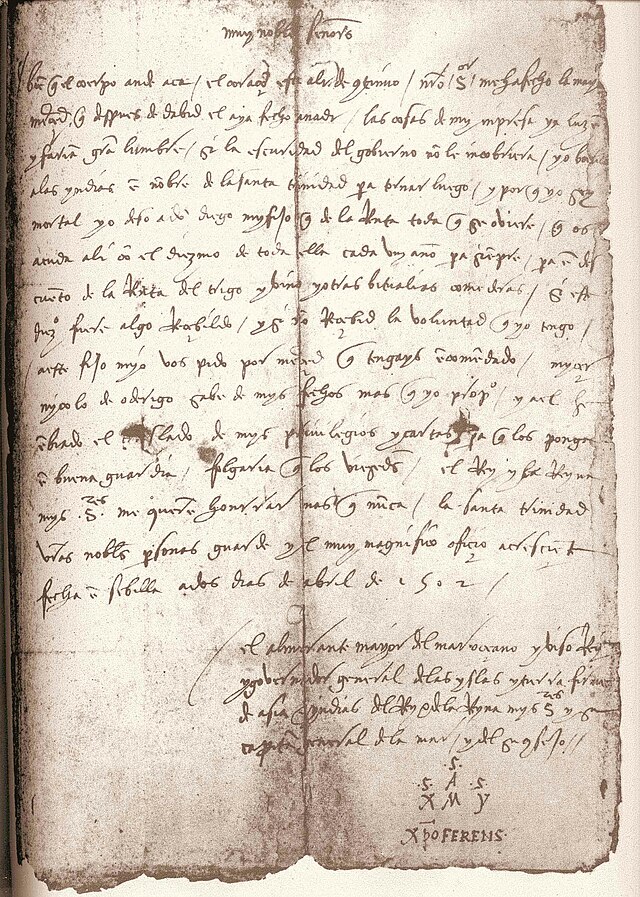 muy nobles señors
bien q el cuerpo ande aca / el coraçō esta ali de gtinuo / nrō Sor me ha fecho la mayor
merced q despues de dabid el aya fecho a nadi / las cosas de my inpresa ya luzē
y fariā gra lunbre / si la escuridad del gobierno nō le incobriera / yo bo
a las yndias ē nōbre de la santa trinidad pa tornar luego / y por q yo soy
mortal yo dexo a dō diego my fijo q de la Rēta toda q se oviere / q os
acuda ali cō el diezmo de toda ella cada un año pa sienpre / pa ē des
cuēto de la Rēta del trigo y vino y otras bitualias comederas / si este
diezo fuere algo Recebildo / y si nō Recebid la voluntad q yo tengo /
a este fijo myo vos pido por merced q tengays ēcomēdado / miçer
nycolo de oderigo sabe de mys fechos mas q yo propo / y a el he
ēbiado el traslado de mys privilegios y cartas pa q los ponga
ē buena guardia / folgaria q los vieseds / el Rey y la Reyna
mys Sres me querē honrrar mas q nūca / la santa trinidad
vras nobles psonas guarde y el muy magnifico oficio acresciente
fecha ē sebilla a dos dias de abril de 1502 /
el almirante mayor del mar oceano y viso Rey
y gobernador general de las yslas y tierra firme
de asia e yndias del Rey e de la Reyna mys Sres y su
capitā general de la mar / y del su gsejo //
.S.
.S. A .S.
X M Y
XpōFERENS